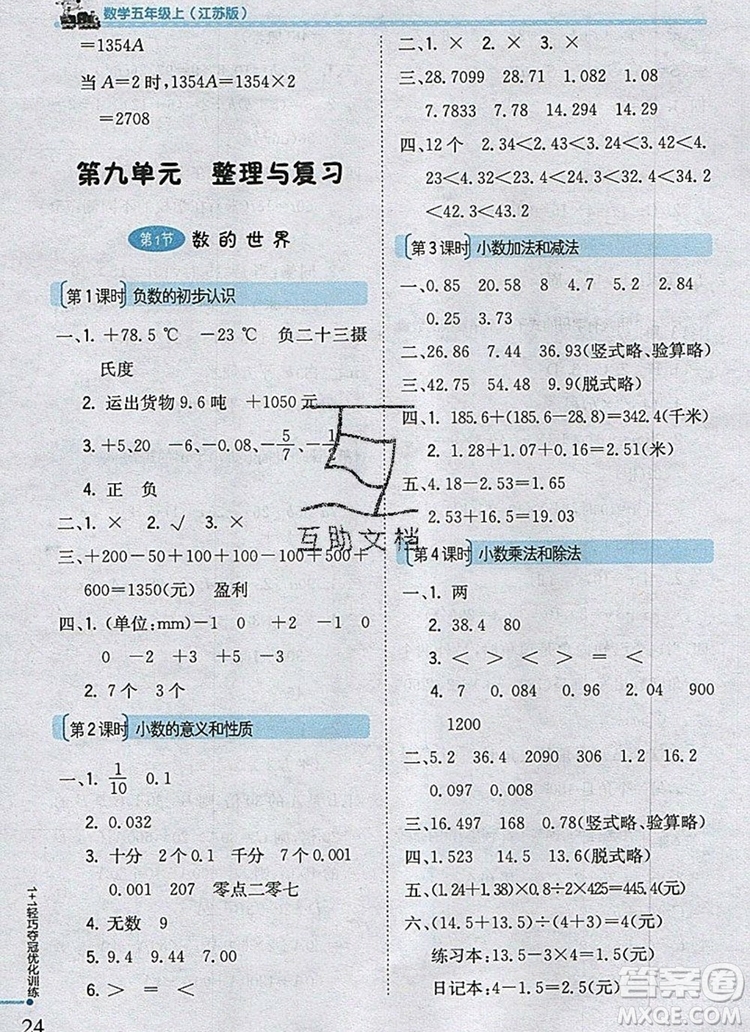 数学五年级上(江苏版)
=1354A
当A=2时,1354A=1354×2
=2708
第九单元 整理与复习
第1节 数的世界
第1课时 负数的初步认识
一、1. +78.5 ℃ -23 ℃ 负二十三摄
氏度
2. 运出货物9.6吨 +1050元
3. +5、20 -6、-0.08、-5/7、-1
4. 正 负
二、1. × 2. √ 3. ×
三、+250-50+100+100-100+500-50+
600=1350(元) 盈利
四、1. (单位:mm)-1 0 +1 +2 -1
0 -2 0 0 +2
2. 7个 3个
第2课时 小数的意义和性质
一、1. 1/10 0.1
2. 0.032
3. 十分 2个0.1 千分 7个0.001
0.001 207 零点二零七
4. 无数 9
5. 9.4 9.44 7.00
6. > > < =
二、1. × 2. × 3. ×
三、28.7099 28.71 1.082 1.08
7.7833 7.78 14.294 14.29
四、12个 2.34<2.43<3.24<3.42<4.
23<4.32<23.4<24.3<32.4<34.2
<42.3<43.2
第3课时 小数加法和减法
一、0.85 20.58 8 4.7 5.2 2
0.25 3.73
二、26.86 7.44 36.93(竖式略、验算略)
三、42.75 54.48 9.8(脱式略)
四、1. 185.6+(185.6-28.8)=342.4(千米)
2. 1.28+1.07+0.16=2.51(米)
五、4.18-2.53=1.65
2.53+16.5=19.03
第4课时 小数乘法和除法
一、1. 两
2. 38.4 80
3. < > < > = <
4. 7 0.084 0.96 0.04 900
1200
二、5.2 36.4 2090 306 1.2 16.2
0.097 0.008
三、16.497 168 0.78(竖式略、验算略)
四、1.523 14.5 13.6(脱式略)
五、(2.4+3.9)×5.5÷2×25.7≈445.4(元)
六、(14.5+13.5)÷(4+3)=4(元)
练习本:13.5-3×4=1.5(元)
日记本:4-1.5=2.5(元)
1+1轻巧夺冠优化训练
24
互助文档
答案圈
MXQE.COM